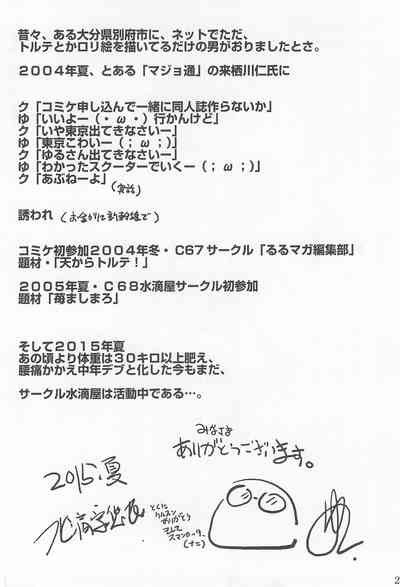 昔々、ある大分県別府市に、ネットでただ、
トルテとかロリ絵を描いてるだけの男がおりましたとさ。
2004年夏、とある「マジョ通」の来栖川仁氏に
ク「コミケ申し込んで一緒に同人誌作らないか」
ゆ「いいよー（・ω・）行かんけど」
ク「いや東京出てきなさいー」
ゆ「東京こわいー（；ω；)」
ク「ゆるさん出てきなさいー」
ゆ「わかったスクーターでいくー（；ω；)」
ク「あぶねーよ」
(実話)
誘われ
コミケ初参加2004年冬・C67サークル「るるマガ編集部」
題材・「天からトルテ！」
2005年夏・C68水滴屋サークル初参加
題材「苺ましまろ」
そして2015年夏
あの頃より体重は30キロ以上肥え、
腰痛かかえ中年デブと化した今もまだ、
サークル水滴屋は活動中である…。
みなさま
ありがとうございます。
2015.夏
とくに
クルスン
ありがとう
そして
スマンかった。
2